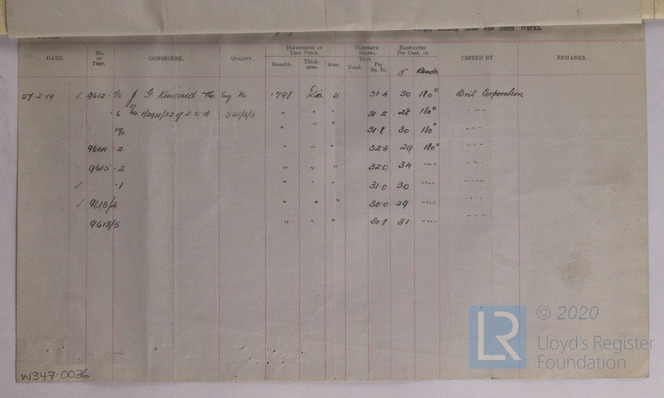 DATE. No. OF TEST. CONSIGNEE. QUALITY DIMENSIONS OF TEST PIECE. Breadth. Thickness. Area. ULTIMATE STRESS. TONS Total. Per Sq. In. ELONGATED Per Cent. on 5 Bends TESTED BY. REMARKS.
27-2-19 9612 J. G. Kincaid .798 Dia 5 31.4 30 180° Brit Corporation
6 31.2 28 180° " "
" " " 31.8 30 180°
9614 - 2 " " " 32.4 29 180° " "
9615 - 2 " " " 32.0 34 " "
- 1 " " " 31.0 30 " "
9613/4 " " " 30.0 29 " "
9613/5 " " " 30.8 31 " "
© 2020
LR Lloyd's Register
Foundation
W347-0036